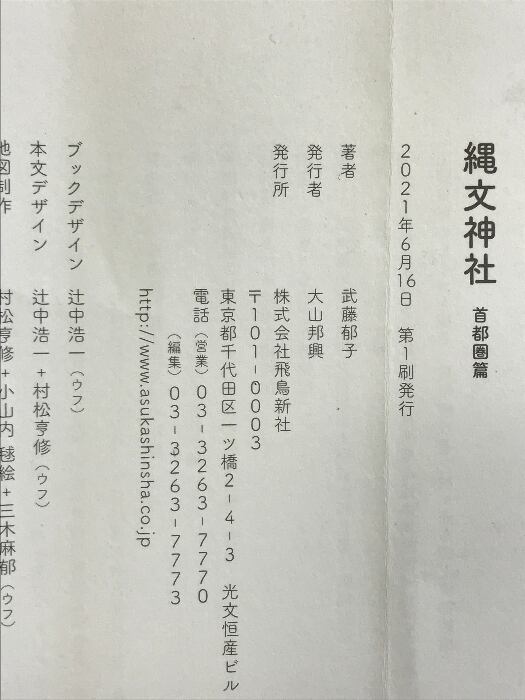 縄文神社 首都圏篇
2021年6月16日 第1刷発行
著者 武藤郁子
発行者 大山邦興
発行所 株式会社飛鳥新社
〒101-0003
東京都千代田区一ツ橋2-4-3 光文恒産ビル
電話（営業）03-3263-7770
（編集）03-3263-7773
http://www.asukashinsha.co.jp
ブックデザイン 辻中浩一（ウフ）
本文デザイン 辻中浩一＋村松亨修（ウフ）
地図制作 村松亨修＋小山内毬絵＋三木麻郁（ウフ）